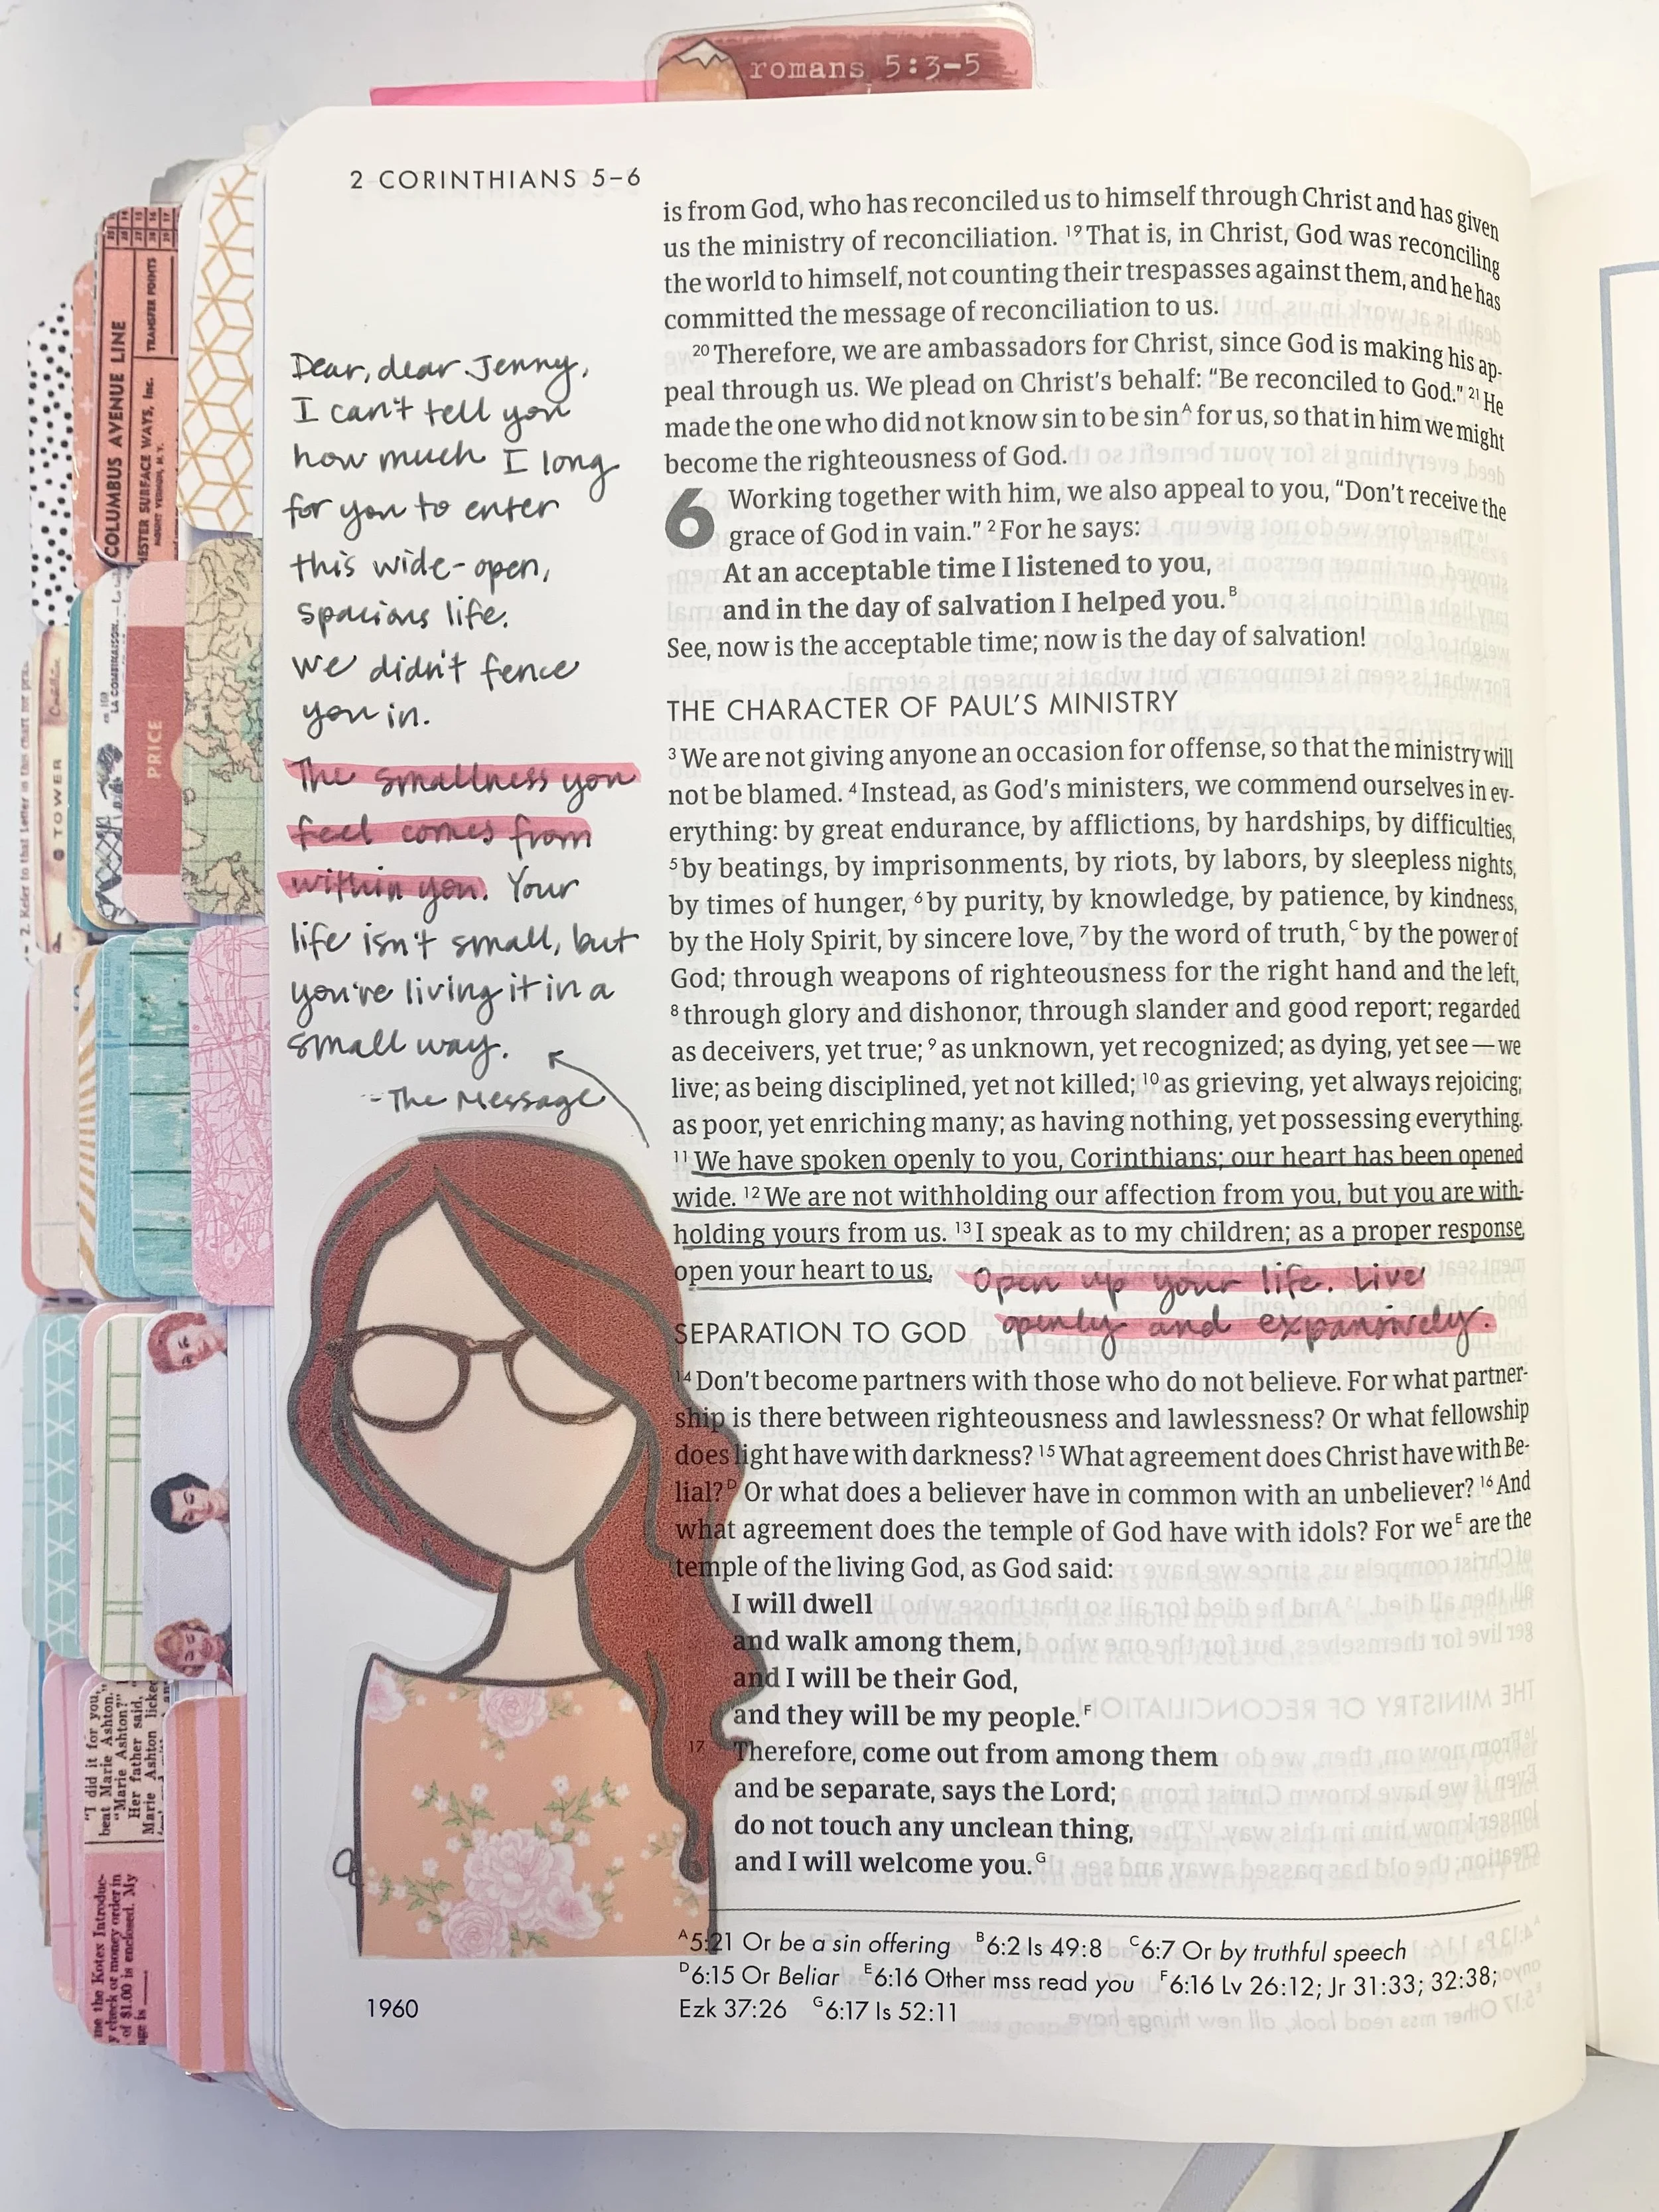 romans 5:3-5
2 CORINTHIANS 5–6
Dear, dear Jenny,
I can't tell you
how much I long
for you to enter
this wide-open,
spacious life.
We didn't fence
you in.
The smallness you
feel comes from
within you. Your
life isn't small, but
you're living it in a
small way.
- The Message
is from God, who has reconciled us to himself through Christ and has given
us the ministry of reconciliation. 19 That is, in Christ, God was reconciling
the world to himself, not counting their trespasses against them, and he has
committed the message of reconciliation to us.
20 Therefore, we are ambassadors for Christ, since God is making his ap-
peal through us. We plead on Christ's behalf: “Be reconciled to God.” 21 He
made the one who did not know sin to be sin A for us, so that in him we might
become the righteousness of God.
6 Working together with him, we also appeal to you, “Don't receive the
grace of God in vain.” 2 For he says:
At an acceptable time I listened to you,
and in the day of salvation I helped you. B
See, now is the acceptable time; now is the day of salvation!
THE CHARACTER OF PAUL'S MINISTRY
3 We are not giving anyone an occasion for offense, so that the ministry will
not be blamed. 4 Instead, as God's ministers, we commend ourselves in ev-
erything: by great endurance, by afflictions, by hardships, by difficulties,
5 by beatings, by imprisonments, by riots, by labors, by sleepless nights,
by times of hunger, 6 by purity, by knowledge, by patience, by kindness,
by the Holy Spirit, by sincere love, 7 by the word of truth, C by the power of
God; through weapons of righteousness for the right hand and the left,
8 through glory and dishonor, through slander and good report; regarded
as deceivers, yet true; 9 as unknown, yet recognized; as dying, yet see — we
live; as being disciplined, yet not killed; 10 as grieving, yet always rejoicing;
as poor, yet enriching many; as having nothing, yet possessing everything.
11 We have spoken openly to you, Corinthians; our heart has been opened
wide. 12 We are not withholding our affection from you, but you are with-
holding yours from us. 13 I speak as to my children; as a proper response,
open your heart to us.
Open up your life. Live
openly and expansively.
SEPARATION TO GOD
14 Don't become partners with those who do not believe. For what partner-
ship is there between righteousness and lawlessness? Or what fellowship
does light have with darkness? 15 What agreement does Christ have with Be-
lial? D Or what does a believer have in common with an unbeliever? 16 And
what agreement does the temple of God have with idols? For we E are the
temple of the living God, as God said:
I will dwell
and walk among them,
and I will be their God,
and they will be my people. F
17 Therefore, come out from among them
and be separate, says the Lord;
do not touch any unclean thing,
and I will welcome you. G
A 5:21 Or be a sin offering B 6:2 Is 49:8 C 6:7 Or by truthful speech
D 6:15 Or Beliar E 6:16 Other mss read you F 6:16 Lv 26:12; Jr 31:33; 32:38;
Ezk 37:26 G 6:17 Is 52:11
1960
COLUMBUS AVENUE LINE
TRANSFER POINTS
HESTER SURFACE WAYS, Inc.
MOUNT VERNON, N. Y.
PRICE
TOWER
"I did it for you,
beat Marie Ashton."
"Marie Ashton?"
Her father said,
Marie Ashton licked
me the Kotex Introduc-
y check or money order in
of $1.00 is enclosed. My